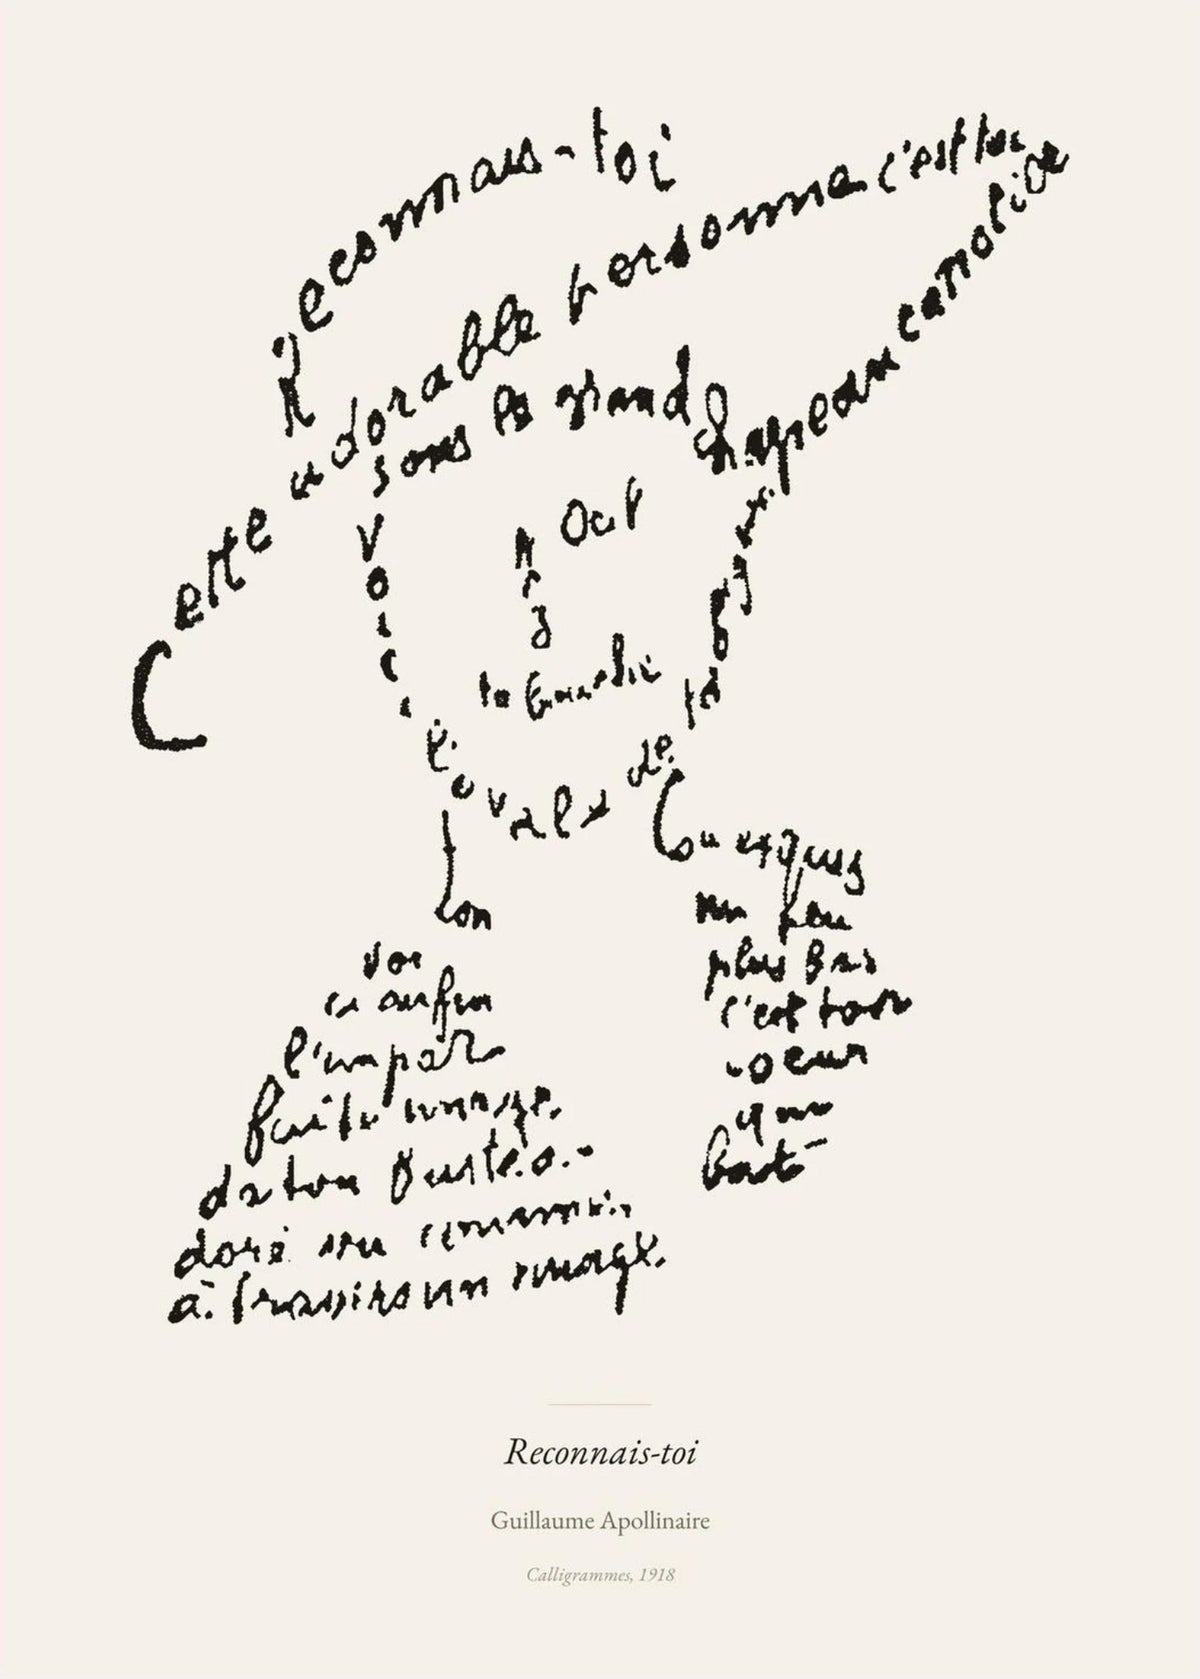 Reconnais-toi
Cette adorable personne c'est toi
sous le grand chapeau canotier
Oeil
Nez
ta bouche
Voici l'ovale de ta figure
Ton
cou exquis
Voi
ci enfin
l'impar
faite image
de ton buste a
doré vu comme
à travers un nuage
un peu
plus bas
c'est ton
coeur
qui
bat
Reconnais-toi
Guillaume Apollinaire
Calligrammes, 1918